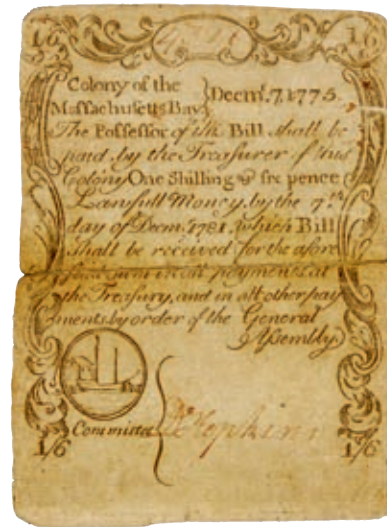 1/6 1/6
Colony of the
Massachusetts Bay } Decmr. 7, 1775.
The Possessor of this Bill shall be
paid by the Treasurer of this
Colony One Shilling & six pence
Lawfull Money, by the 7th
day of Decm. 1781, which Bill
shall be received for the afore
said sum in all payments at
the Treasury, and in all other pay
ments by order of the General
Assembly
Committee
Hopkins
1/6 1/6